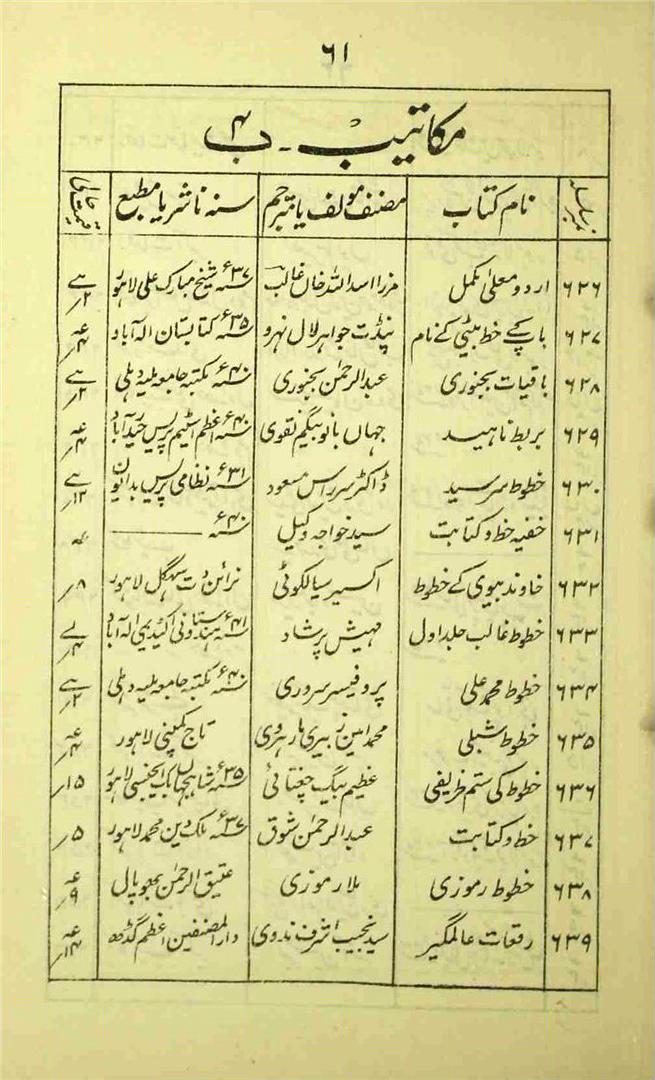 ۶۱
مکاتیب - ب ۴
نمبر سلسلہ نام کتاب مصنف مولف یا مترجم سنہ ناشر یا مطبع قیمت حالی
۶۲۶ اردو معلیٰ مکمل مرزا اسد اللہ خاں غالب سنہ ۳۷ء شیخ مبارک علی لاہور
۶۲۷ باپ کے خط بیٹی کے نام پنڈت جواہر لال نہرو سنہ ۳۵ء کتابستان الہ آباد
۶۲۸ باقیات بجنوری عبدالرحمٰن بجنوری سنہ ۴۰ء مکتبہ جامعہ ملیہ دہلی
۶۲۹ بربط ناہید جہاں بانو بیگم نقوی سنہ ۴۰ء اعظم اسٹیم پریس حیدرآباد
۶۳۰ خطوط سرسید ڈاکٹر سر راس مسعود سنہ ۳۱ء نظامی پریس بدایون
۶۳۱ خفیہ خط و کتابت سید خواجہ وکیل سنہ ۴۰ء
۶۳۲ خاوند بیوی کے خطوط اکسیر سیالکوٹی نرائن دت سہگل لاہور ۸؍
۶۳۳ خطوط غالب جلد اول مہیش پرشاد سنہ ۴۱ء ہندستانی اکیڈیمی الہ آباد
۶۳۴ خطوط محمد علی پروفیسر سروری سنہ ۴۰ء مکتبہ جامعہ ملیہ دہلی
۶۳۵ خطوط شبلی محمد امین زبیری مارہروی تاج کمپنی لاہور
۶۳۶ خطوط کی ستم ظریفی عظیم بیگ چغتائی سنہ ۳۵ء شاہجہاں بک ایجنسی لاہور ۱۵؍
۶۳۷ خط و کتابت عبدالرحمٰن شوق سنہ ۳۷ء ملک دین محمد لاہور ۵؍
۶۳۸ خطوط رموزی ملا رموزی عتیق الرحمٰن بھوپال
۶۳۹ رقعات عالمگیر سید نجیب اشرف ندوی دارالمصنفین اعظم گڈھ